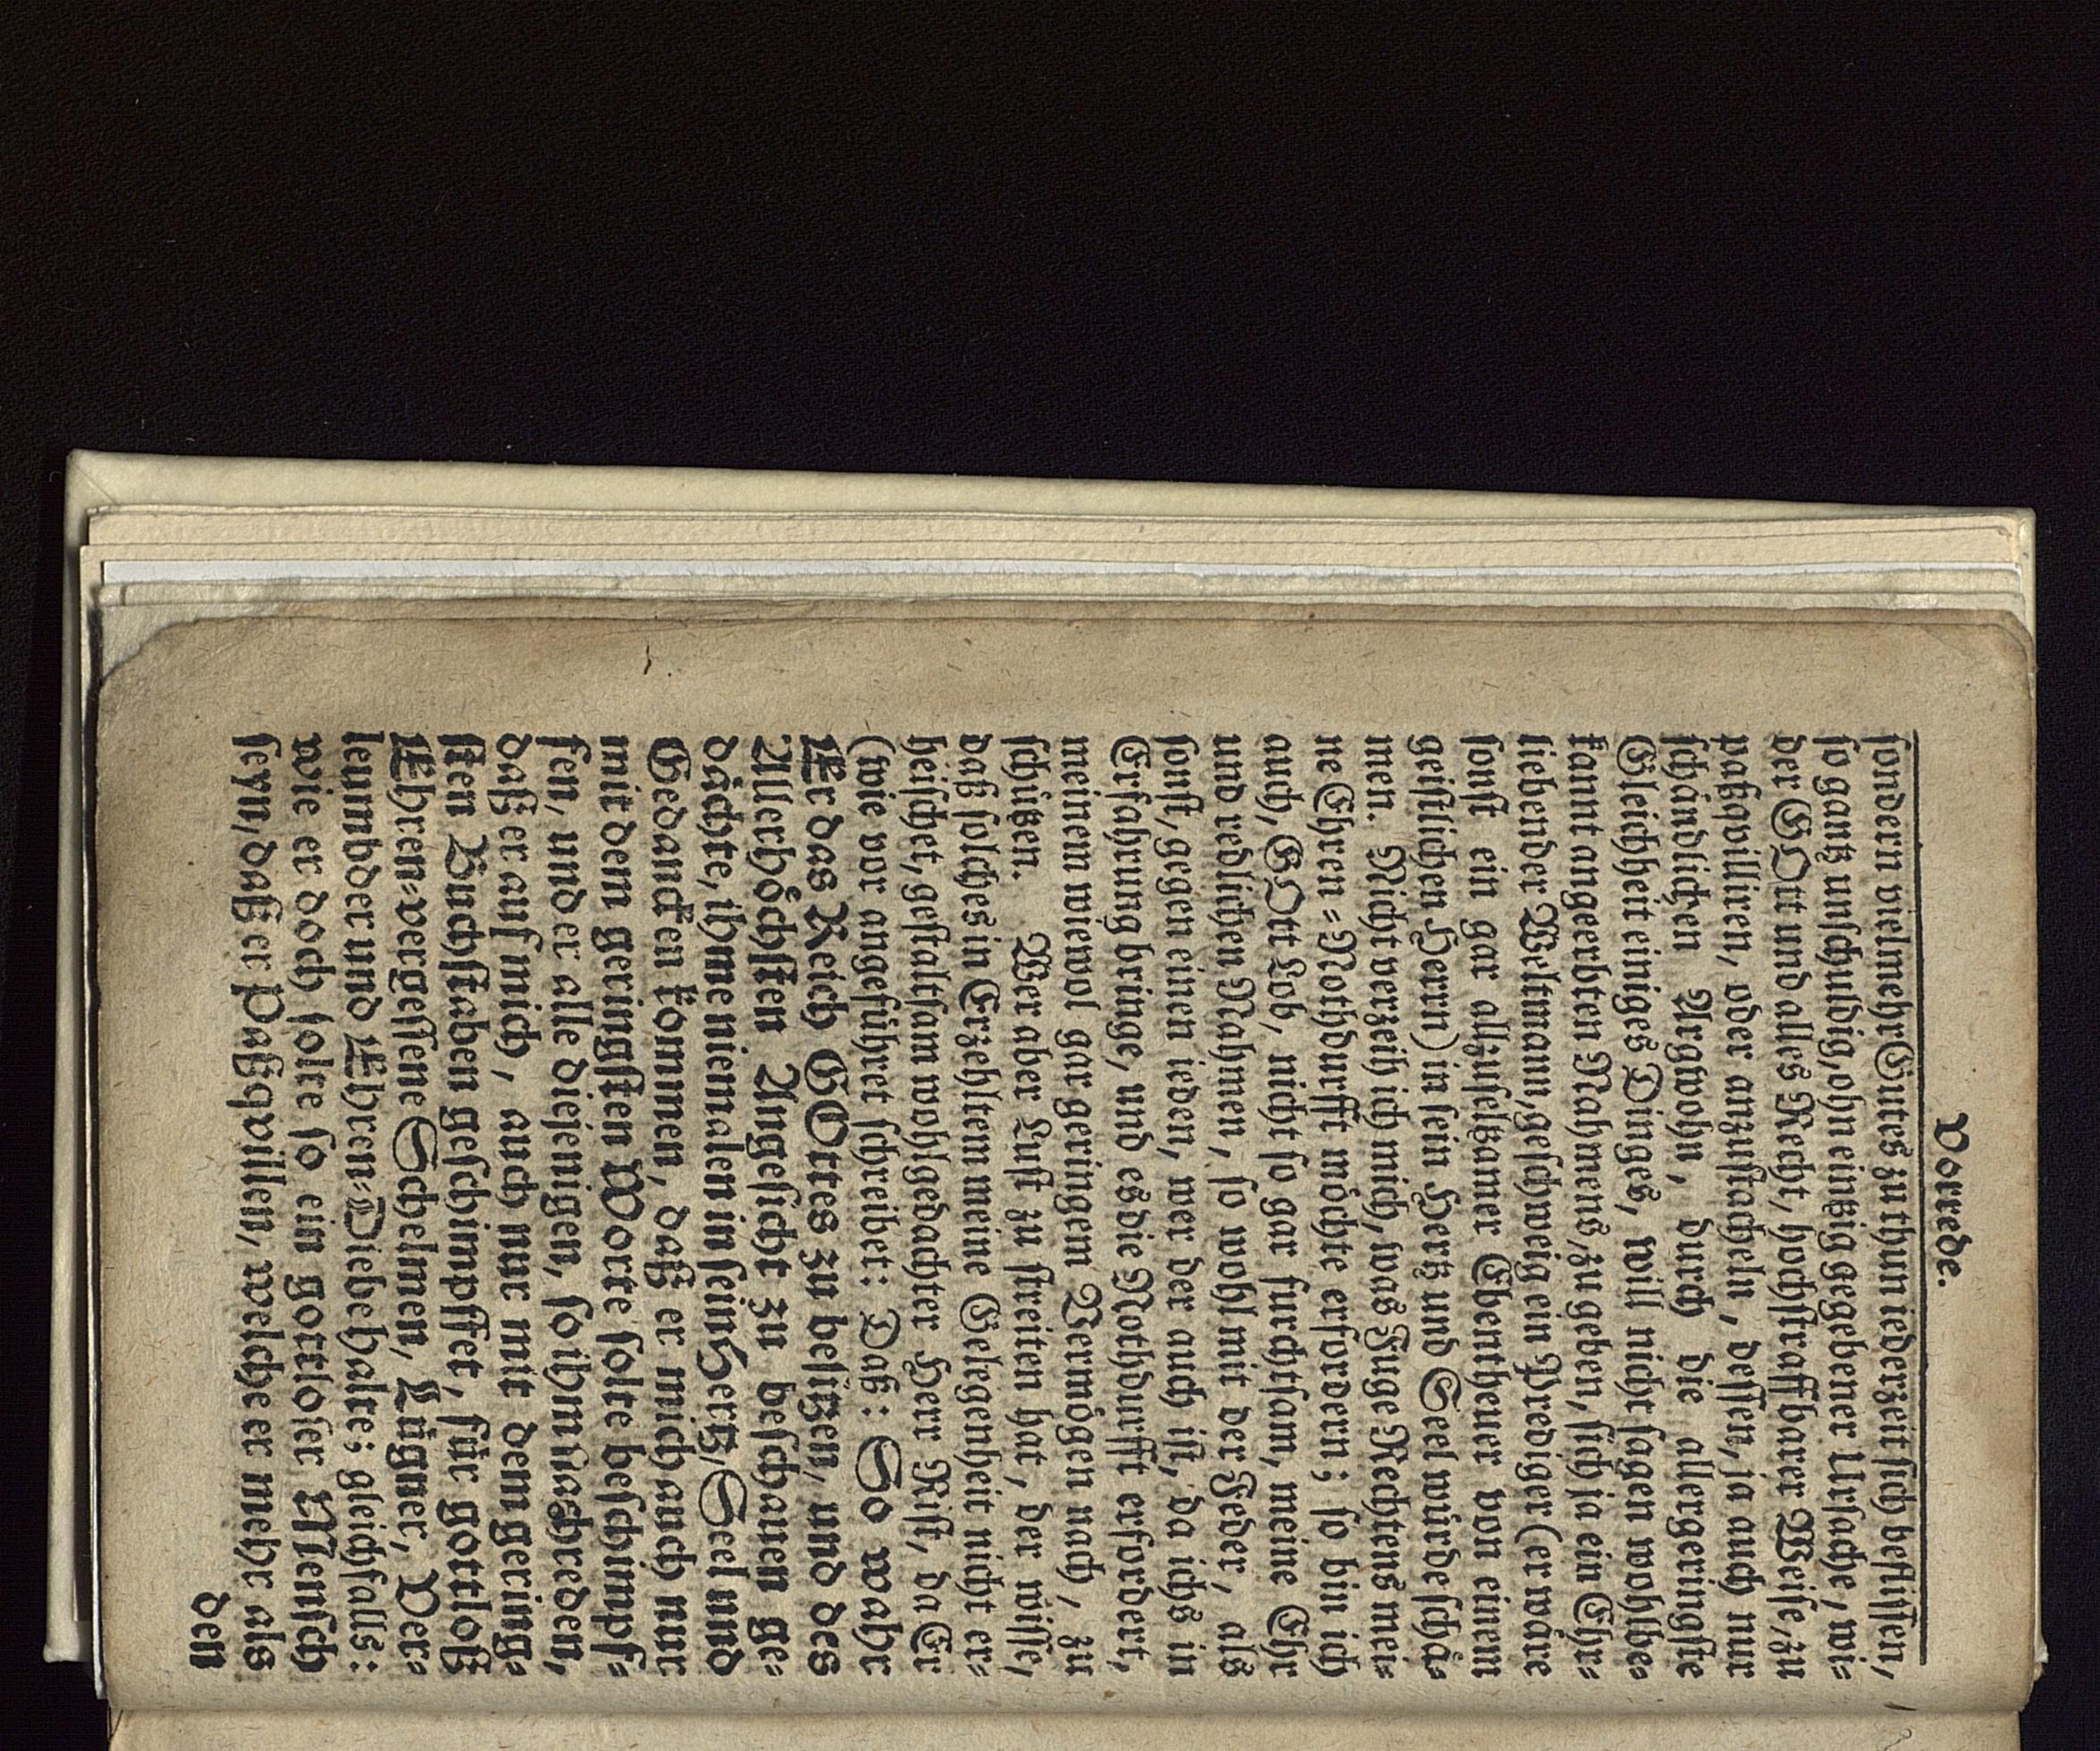 Vorrede.
ſondern vielmehr Gutes zu thun iederzeit ſich befliſſen,
ſo gantz unſchuldig, ohn eintzig gegebener Urſache, wi-
der GOtt und alles Recht, hochſtraffbarer Weiſe, zu
paßqvilliren, oder anzuſtacheln, deſſen, ja auch nur
ſchändlichen Argwohn, durch die allergeringſte
Gleichheit einiges Dinges, will nicht ſagen wohlbe-
kannt angeerbten Nahmens, zu geben, ſich ja ein Ehr-
liebender Weltmann, geſchweig ein Prediger (er wäre
ſonſt ein gar allzuſeltzamer Ebentheuer von einem
geiſtlichen Herrn) in ſein Hertz und Seel würde ſchä-
men. Nicht verzeih ich mich, was Fuge Rechtens mei-
ne Ehren-Nothdurfft möchte erfordern; ſo bin ich
auch, GOtt Lob, nicht ſo gar furchtſam, meine Ehr
und redlichen Nahmen, ſo wohl mit der Feder, als
ſonſt, gegen einen ieden, wer der auch iſt, da ichs in
Erfahrung bringe, und es die Nothdurfft erfordert,
meinem wiewol gar geringem Vermögen nach, zu
ſchützen. Wer aber Luſt zu ſtreiten hat, der wiſſe,
daß ſolches in Erzehltem meine Gelegenheit nicht er-
heiſchet, geſtaltſam wohlgedachter Herr Riſt, da Er
(wie vor angeführet ſchreibet: Daß: So wahr
Er das Reich GOttes zu beſitzen, und des
Allerhöchſten Angeſicht zu beſchauen ge-
dächte, ihme niemalen in ſein Hertz, Seel und
Gedancken kommen, daß er mich auch nur
mit dem geringſten Worte ſolte beſchimpf-
fen, und er alle diejenigen, ſo ihm nachreden,
daß er auf mich, auch nur mit dem gering-
ſten Buchſtaben geſchimpffet, für gottloß
Ehren-vergeſſene Schelmen, Lügner, Ver-
leumbder und Ehren-Diebe halte; gleichfalls:
wie er doch ſolte ſo ein gottloſer Menſch
ſeyn, daß er Paßqvillen, welche er mehr als
den